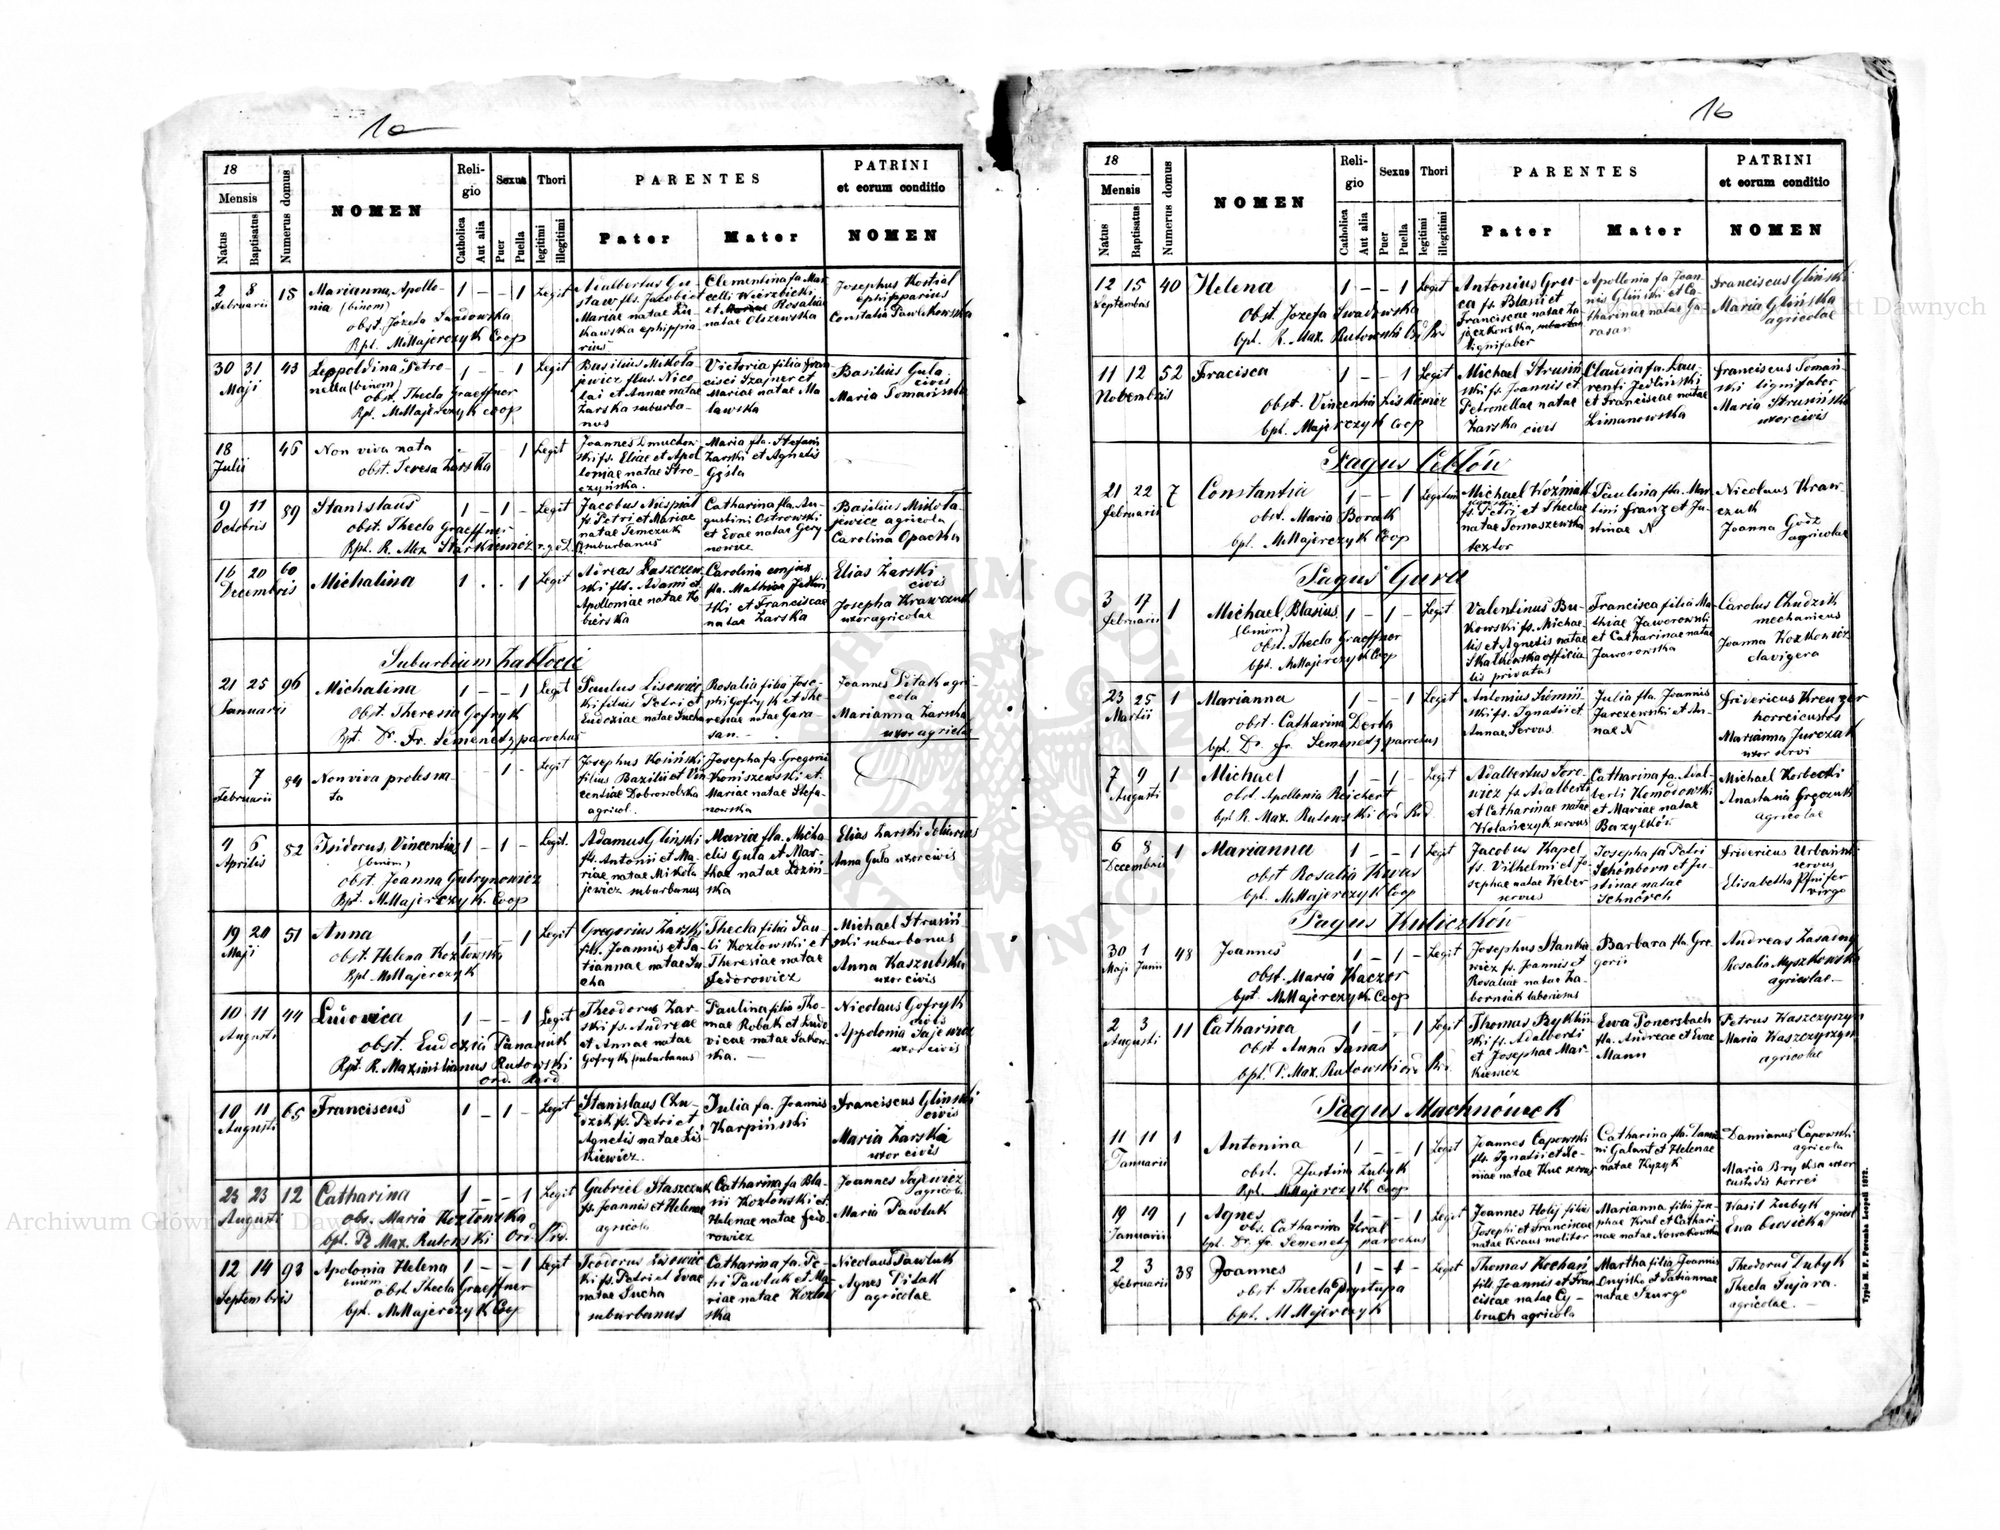 1a
18
Mensis
Natus
Baptisatus
Numerus domus
NOMEN
Religio
Catholica
Aut alia
Sexus
Puer
Puella
Thori
legitimi
illegitimi
PARENTES
Pater
Mater
PATRINI
et eorum conditio
NOMEN
2 8
Februarii
15
Marianna, Apollo-
nia (binom)
obst. Józefa
Bpt. M Majerczyk Coop
1 – – 1 Legit
Adalbertus Gu-
staw fls. Jacobi et
Mariae natae
kawska ephippia-
rius
Clementina fa. Mar-
celli Wierzbicki
et Rosaliae
natae Olszewska
Josephus Kostial
ephipparius
Constatia Pawlikowska
30 31
Maji
43
Leopoldina, Petro-
nella (binom)
obst. Thecla Graeffner
Bpt. M Majerczyk coop
1 – – 1 Legit
Basilius Mikoła-
jewicz flus. Nico-
lai et Annae natae
Żarska suburba-
nus
Victoria filia Fran-
cisci Szajner et
Mariae natae Ma-
lawska
Basilius Guła
civis
Maria Tomańska
18
Julii
46
Non viva nata
obst. Teresa Żarska
– – – 1 Legit
Joannes Dmuchow-
ski fs. Eliae et Apol-
loniae natae Stro-
czyńska.
Maria fla. Stefani
Żarski et Agnetis
Gęsla
9 11
Octobris
59
Stanislaus
obst. Thecla Graeffner
Bpt. R. Alex Starkiewicz
1 – 1 – Legit
Jacobus
fs Petri et Mariae
natae Temczuk
suburbanus
Catharina fla. Au-
gustini Ostrowski
et Evae natae
nowicz
Basilius Mikoła-
jewicz agricola
Carolina Opacka
16 20
Decembris
60
Michalina
1 . . 1 Legit
Adreas Łaszczew-
ski fls. Adami et
Apolloniae natae Ko-
bierska
Carolina conjux
fla. Mathiae Jedliń-
ski et Franciscae
natae Żarska
Elias Żarski
civis
Josepha Krawczuk
uxor agricolae
Suburbium Zabłocie
21 25
Januarii
96
Michalina
obst. Theresia Gofryk
Bpt. Dr. Fr. Semenetz parochus
1 – – 1 Legit
Paulus Lisowic-
ki filius Petri et
Eudoxiae natae Sucha
Rosalia filia Jose-
phi Gofryk et The-
resiae natae Gara-
san. –
Joannes Pitak agri-
cola
Marianna Żarska
uxor agricolae
7
Februarii
84
Non viva proles na-
ta
– – 1 – Legit
Josephus Kosiński
filius Bazilii et Vin-
centiae Dobrowolska
agricol.
Josepha fa. Gregorii
Koniszewski et
Mariae natae Stefa-
nowska
4 6
Aprilis
52
Isidorus, Vincentius
(binom)
obst. Joanna Gubrynowicz
Bpt. M Majerczyk. Coop
1 – 1 – Legit.
Adamus Gliński
fls. Antonii et Ma-
riae natae Mikoła-
jewicz suburbanus
Maria fla. Micha-
elis Guła et Mar-
thae natae Łoziń-
ska
Elias Żarski
Anna Guła uxor civis
19 20
Maji
51
Anna
obst. Helena Kozłowska
Bpt. M Majerczyk
1 – – 1 Legit
Gregorius Żarski
fils. Joannis et Ta-
tiannae natae Su-
cha
Thecla filia Pau-
li Kozłowski et
Theresiae natae
Fedorowicz
Michael Strusiń-
ski suburbanus
Anna Kaszubska
uxor civis
10 11
Augusti
44
Ludovica
obst. Eudoxia Panasiuk
Bpt. R. Maximilianus Rutowski
Ord. Pred
1 – – 1 Legit
Theodorus Żar-
ski fs. Andreae
et Annae natae
Gofryk suburbanus
Paulina filia Tho-
mae Robak et Ludo-
vicae natae Sakow-
ska. –
Nicolaus Gofryk
civis
Appolonia Sajewicz
uxor civis
10 11
Augusti
65
Franciscus
1 – 1 – Legit
Stanislaus Chu-
dzik fs. Petri et
Agnetis natae Lis-
kiewicz
Julia fa. Joannis
Karpiński
Franciscus Gliński
civis
Maria Żarska
uxor civis
23 23
Augusti
12
Catharina
obs. Maria Kozłowska
bpt. R Max. Rutowski Ord. Prd.
1 – – 1 Legit
Gabriel Staszczuk
fs. Joannis et Helenae
agricola
Catharina fa Bla-
sii Kozłowski et
Helenae natae Fedo-
rowicz
Joannes Sajewicz
agricola
Maria Pawluk
12 14
Septembris
93
Apolonia Helena
binom
obst Thecla Graeffner
bpt. M Majerczyk Coop
1 – – 1 Legit
Teodorus Lisowic-
ki fs. Petri et Evae
natae Sucha
suburbanus
Catharina fa. Pe-
tri Pawluk et Ma-
riae natae Kozłow-
ska
Nicolaus Pawluk
Agnes Pitak
agricolae
1b
18
Mensis
Natus
Baptisatus
Numerus domus
NOMEN
Religio
Catholica
Aut alia
Sexus
Puer
Puella
Thori
legitimi
illegitimi
PARENTES
Pater
Mater
PATRINI
et eorum conditio
NOMEN
12 15
Septembris
40
Helena
obst. Jozefa Swadzowska
bpt. R. Max. Rutowski Or. Prd
1 – – 1 Legit
Antonius Gru-
ca fs. Blasii et
Franciscae natae Za-
jączkowska, suburban
lignifaber
Apollonia fa Joan-
nis Gliński et Ca-
tharinae natae Ga-
rasan
Franciscus Gliński
Maria Glińska
agricolae
11 12
Novembris
52
Fracisca
obst. Vincentia Liskiewicz
bpt. Majerczyk Coop
1 – – 1 Legit
Michael Strusiń-
ski fs. Joannis et
Petronellae natae
Żarska civis
Claudia fa. Lau-
renti Jedliński
et Franciscae natae
Limanowska
Franciscus Toman-
ski lignifaber
Maria Strusińska
uxor civis
Pagus Cebłów
21 22
Februarii
7
Constantia
obst. Maria Borack
bpt. M Majerczyk Coop
1 – – 1 Legitim
Michael Koźmiak
fs. Petri et Theclae
natae Tomaszewska
textor
Paulina fla. Mar-
tini Franz et Ju-
stinae N
Nicolaus Kraw-
czuk
Joanna Godz
agricolae
Pagus Gura
3 17
Februarii
1
Michael, Blasius
(binom)
obst. Thecla Graeffner
bpt. M Majerczyk Coop
1 – 1 – Legit
Valentinus Bu-
kowski fs. Michae-
lis et Agnetis natae
Skałkowska officia-
lis privatus
Francisca filia Ma-
thiae Jaworowski
et Catharinae natae
Jaworowska
Carolus Chudzik
mechanicus
Joanna Kozkowicz
clavigera
23 25
Martii
1
Marianna
obst. Catharina Derba
bpt. Dr. Fr. Semenetz parochus
1 – – 1 Legit
Antonius Siemiń-
ski fs. Ignatii et
Annae. Servus.
Julia fla. Joannis
Jarczewski et An-
nae N
Fridericus Kreuzer
horreicustos
Marianna Jurczak
uxor servi
7 9
Augusti
1
Michael
obst. Apollonia Reichert
bpt R. Max. Rutowski Ord Prd.
1 – 1 – Legit
Adalbertus Soro-
wicz fs. Adalberti
et Catharinae natae
Kołańczyk servus
Catharina fa. Adal-
berti Komosowski
et Mariae natae
Bazylków
Michael Korbecki
Anastasia Gręczuk
agricolae
6 8
Decembris
1
Marianna
obst Rosalia Kuras
bpt. M Majerczyk Coop
1 – – 1 Legit
Jacobus Kapel
fs. Vilhelmi et Jo-
sephae natae Weber
servus
Josepha fa Petri
Schönborn et Ju-
stinae natae
Schnörch
Fridericus Urbański
servus
Elisabetha Pfeifer
virgo
Pagus Kuliczków
30 1
Maji Junii
48
Joannes
obst. Maria Kaczor
bpt. M Majerczyk Coop
1 – 1 – Legit
Josephus Stankie-
wicz fs. Joannis et
Rosaliae natae Za-
borniak laborious
Barbara fla. Gre-
goris
Andreas Zasadny
Rosalia Myszkowska
agricolae –
2 3
Augusti
11
Catharina
obst. Anna Panas
bpt. P. Max. Rutowski ord Prd.
1 – . 1 Legit
Thomas Byklin-
ski fs. Adalberti
et Josephae Mar-
kiewicz
Ewa Ponersbach
fla. Andreae et Evae
Mann
Petrus Kaszczyszyn
Maria Kaszczyszyn
agricolae
Pagus Machnówek
11 11
Januarii
1
Antonina
obst. Justina Zubyk
Bpt. M Majerczyk Coop
1 – – 1 Legit
Joannes Capowski
fls. Ignatii et Xe-
niae natae Kuc servus
Catharina fla. Damia-
ni Galant et Helenae
natae Kyzyk
Damianus Capowski
agricola
Maria Bryksa uxor
custodis horrei
19 19
Januarii
1
Agnes
obs. Catharina Kral
bpt. Dr. Fr. Semenetz parochus
1 – – 1 Legit
Joannes Holij filius
Josephi et Franciscae
natae Kraus molitor
Marianna filia Jose-
phae Kral et Cathari-
nae natae Nowakowska
Wasil Zubyk agricol
Ewa Cwosicka
2 3
Februarii
38
Joannes
obst Thecla Prystupa
bpt. M Majerczyk
1 – 1 – Legit
Thomas Kochań
fils. Joannis et Fran-
ciscae natae Cy-
bruch agricola
Martha filia Joannis
Onyśko et Tatiannae
natae Szurgo
Theodorus Dubyk
Thecla Fujara.
agricolae. –
Typis H. F. Poremba Leopoli 1872.
Archiwum Główne Akt Dawnych
Archiwum Główne Akt Dawnych
ARCHIWUM GŁÓWNE AKT DAWNYCH